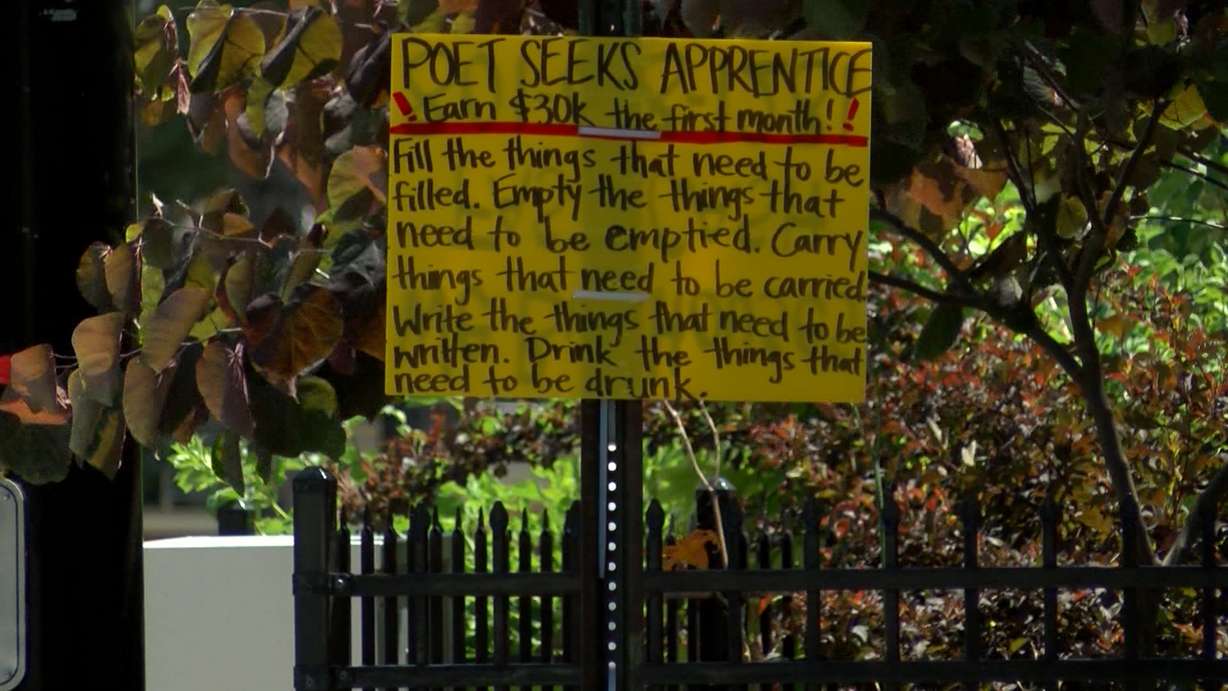 POET SEEKS APPRENTICE
! Earn $30k the first month!!
Fill the things that need to be
filled. Empty the things that
need to be emptied. Carry
things that need to be carried
Write the things that need to be
written. Drink the things that
need to be drunk.